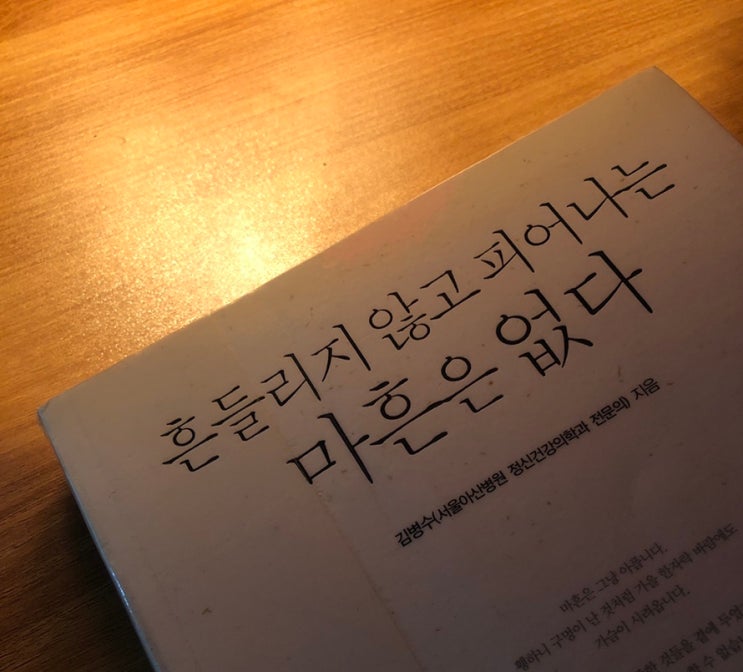 흔들리지 않고 피어나는
마흔은 없다
김병수(서울아산병원 정신건강의학과 전문의) 지음
마흔은 그냥 아픕니다.
휑하니 구멍이 난 것처럼 가을 한자락 바람에도
가슴이 시려옵니다.
것들을 곁에 두었